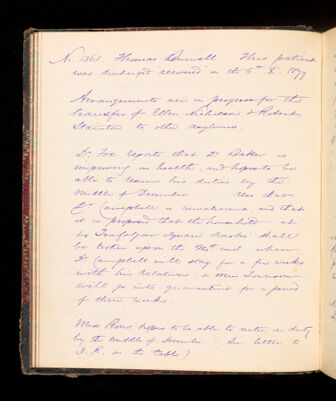 N. 1361. Thomas Dunwell. This patient
was discharged 'recovered' on the 6th X. 1877
Arrangements are in progress for the
transfer of Ellen Nicholson & Robert
Stainton to other asylums.
Dr Fox reports that Dr Baker is
improving in health, and hopes to be
able to resume his duties by the
Middle of December. Also that
Dr Campbell is convalescent, and that
it is proposed that the household at
4 Trafalgar Square Scarbro' shall
be broken up on the 24th inst. when
Dr Campbell will stay for a few weeks
with his relatives, & Miss
will go into quarantine for a period
of three weeks.
Miss hopes to be able to enter on duty
by the middle of December. (See letter to
D. R. on the table)